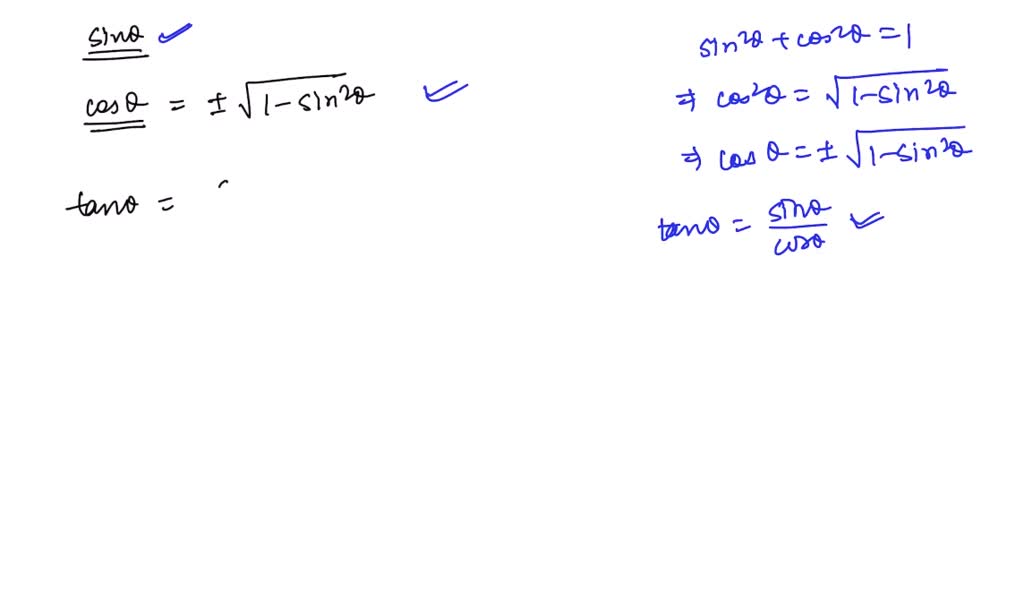 sinθ ✓
cosθ = ± √(1-sin²θ) ✓
tanθ =
sin²θ + cos²θ = 1
⇒ cos²θ = √(1-sin²θ)
⇒ cos θ = ± √(1-sin²θ)
tanθ = sinθ/cosθ ✓